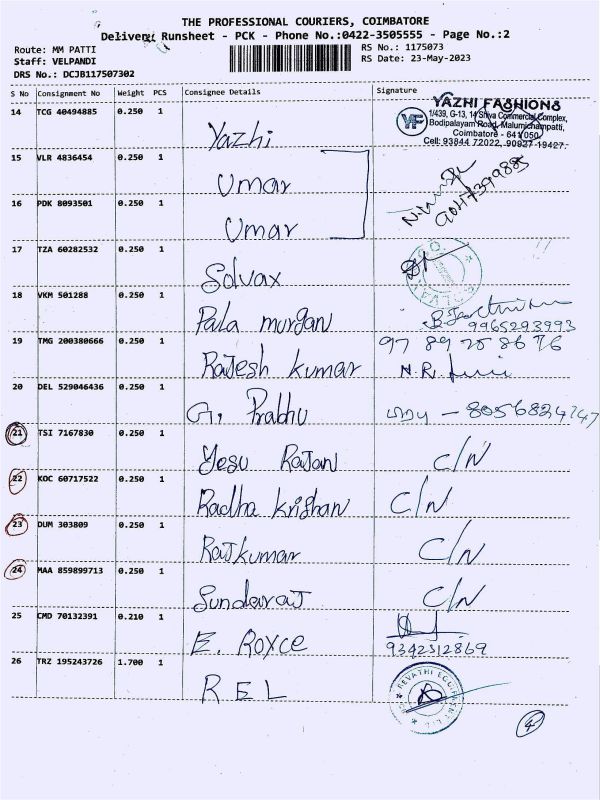 THE PROFESSIONAL COURIERS, COIMBATORE
Delivery Runsheet - PCK - Phone No.:0422-3505555 - Page No.:2
Route: MM PATTI RS No.: 1175073
Staff: VELPANDI RS Date: 23-May-2023
DRS No.: DCJB117507302
S No Consignment No Weight PCS Consignee Details Signature
14 TCG 40494885 0.250 1 Yazhi
YAZHI FASHIONS
YF
1/439, G-13, 14 Shiva Commercial Complex,
Bodipalayam Road, Malumichampatti,
Coimbatore - 641 050
Cell: 93644 72022, 90927 19427
15 VLR 4836454 0.250 1 Umar
16 PDK 8093501 0.250 1 Umar
9047399885
17 TZA 60282532 0.250 1 Solvax
18 VKM 501288 0.250 1 Pala murgan
9965293993
19 TMG 200380666 0.250 1 Rajesh kumar 97 89 25 86 76
N.R.
20 DEL 529046436 0.250 1 G. Prabhu 8056824247
21 TSI 7167830 0.250 1 Yesu Rajan C/N
22 KOC 60717522 0.250 1 Radha Krishan C/N
23 DUM 303809 0.250 1 Rajkumar C/N
24 MAA 859899713 0.250 1 Sundaraj C/N
25 CMD 70132391 0.210 1 E. Royce
9342512869
26 TRZ 195243726 1.700 1 REL
REVATHI EQUIPMENT
4